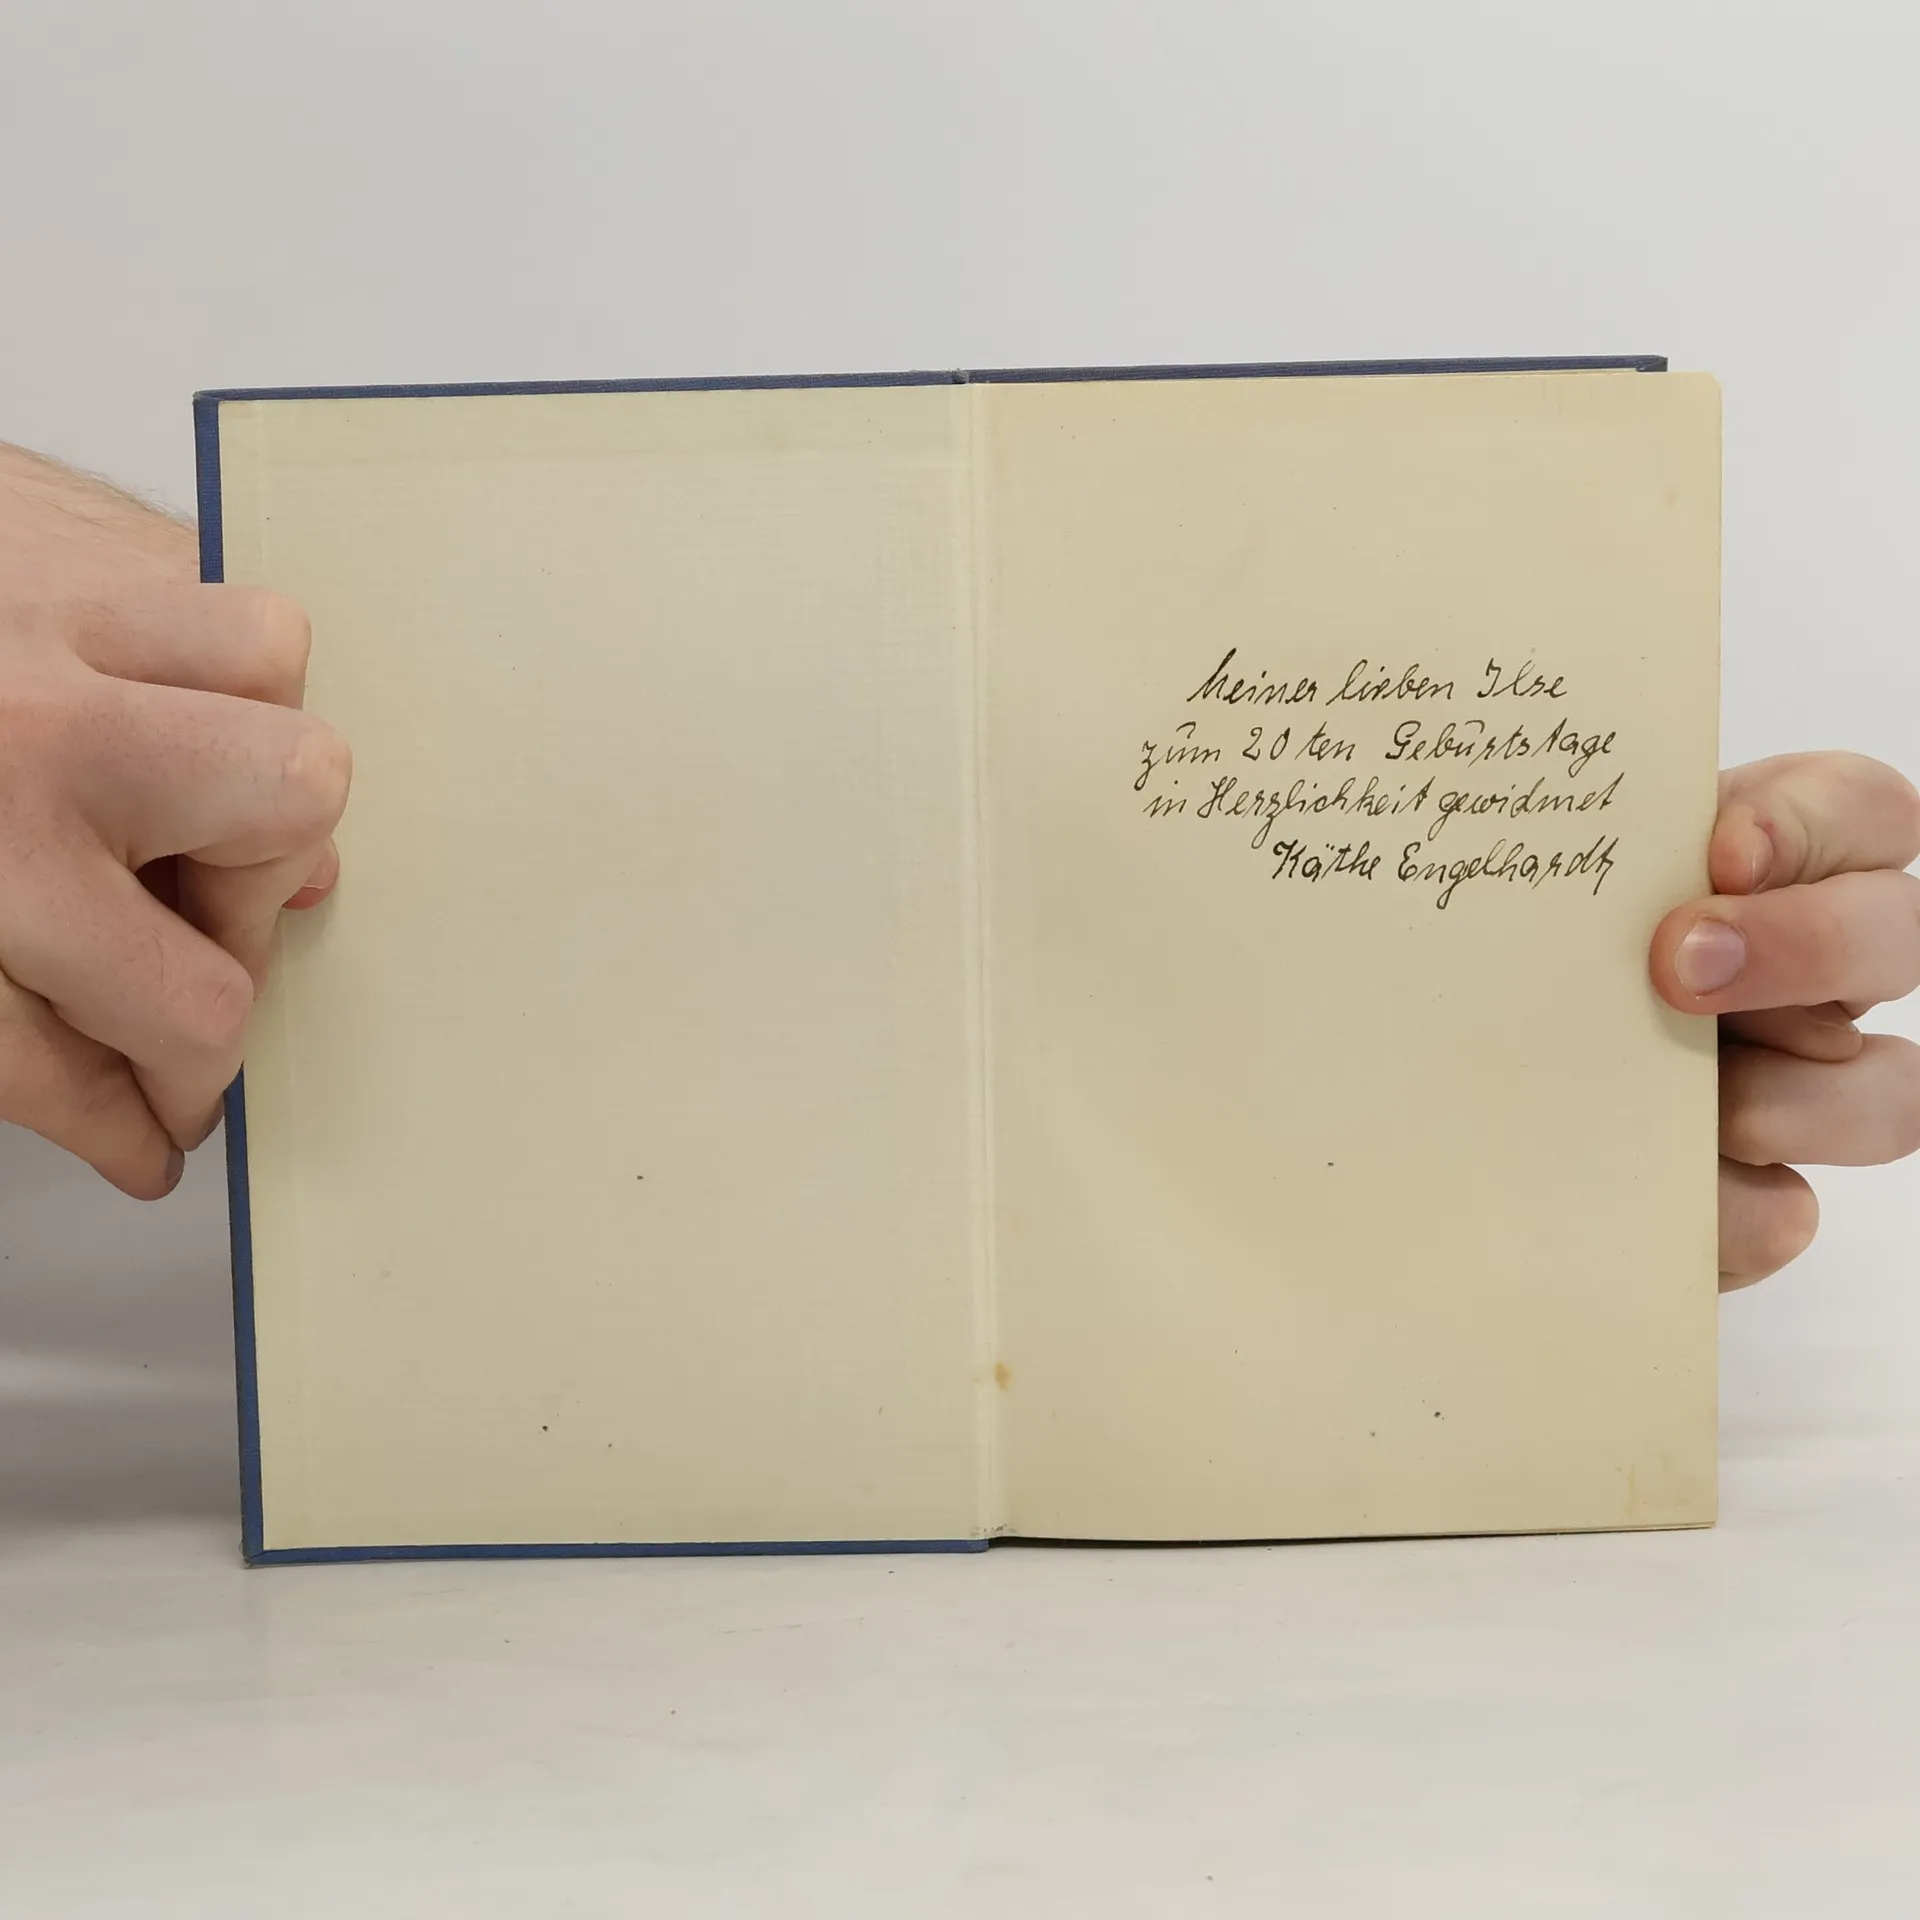 Meiner lieben Ilse
zum 20ten Geburtstage
in Herzlichkeit gewidmet
Käthe Engelhardt